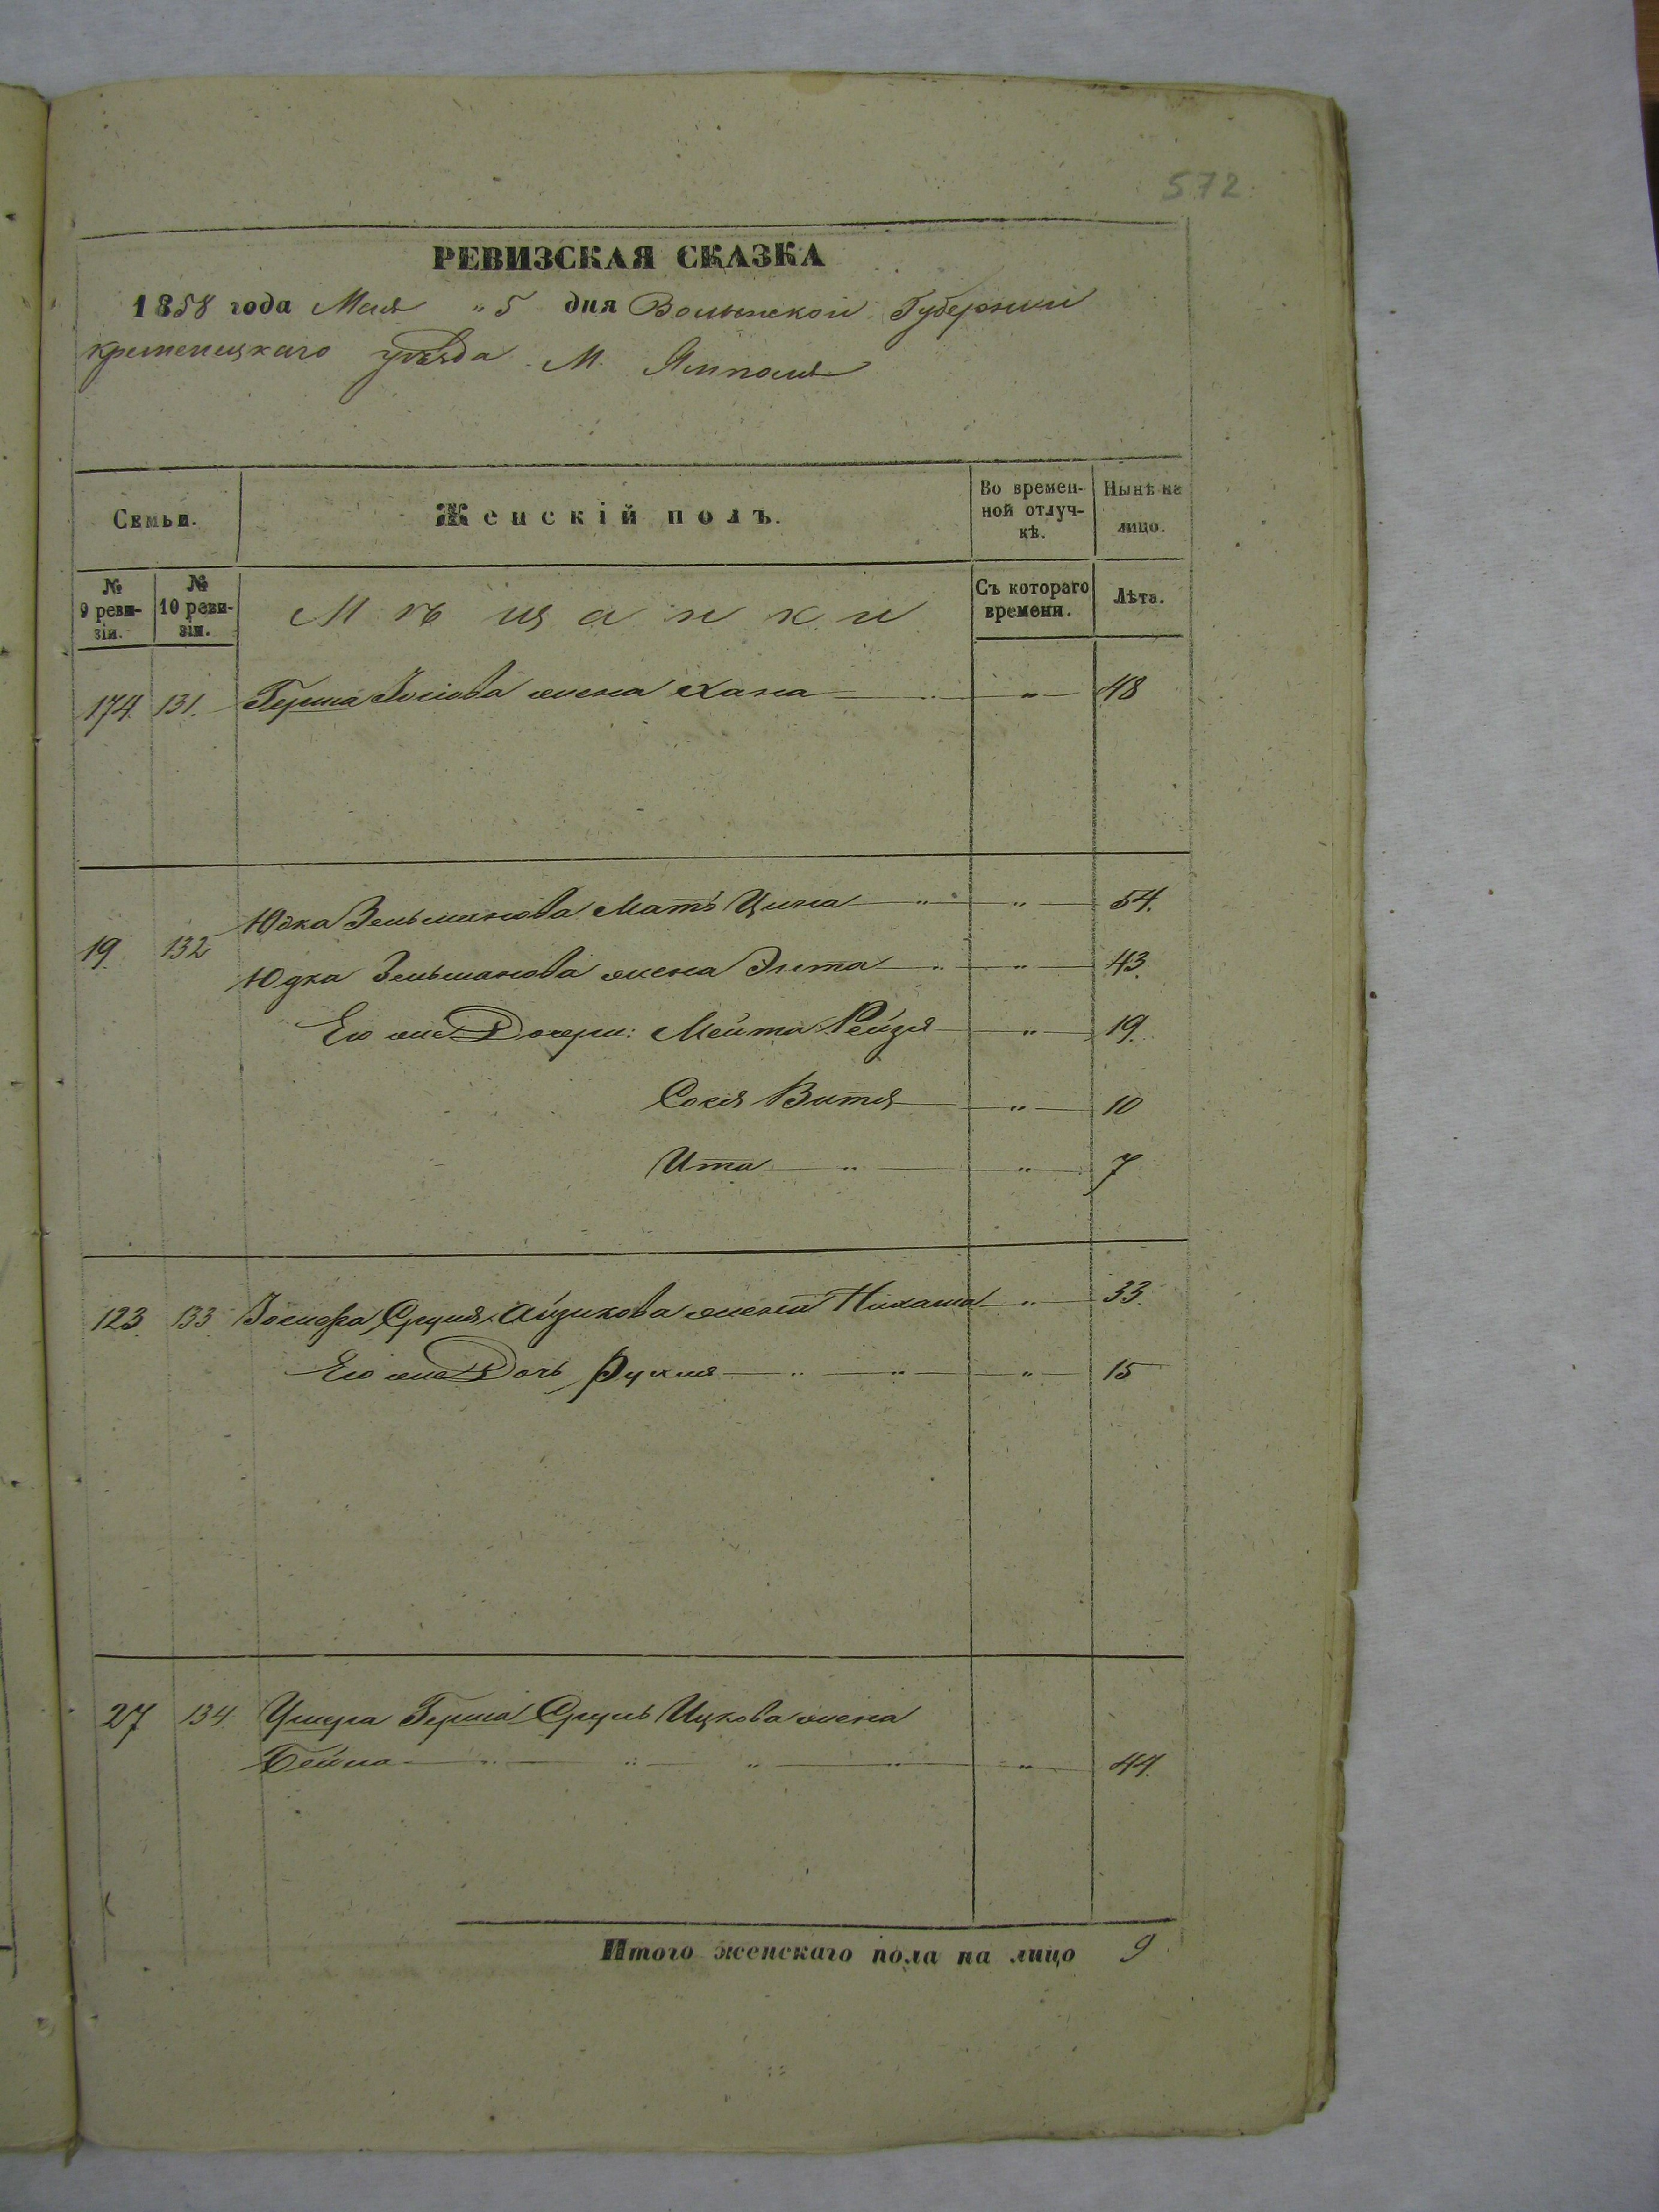 572
РЕВИЗСКАЯ СКАЗКА
1858 года Мая „ 5 дня Волынской Губернии
Кременецкаго уѣзда М. Ямполя
Семьи.
Женскій полъ.
Во времен-
ной отлуч-
кѣ.
Нынѣ на
лицо.
№
9 реви-
зіи.
№
10 реви-
зіи.
Мѣщанки
Съ котораго
времени.
Лѣта.
174. 131. Герша Іосіова жена Хана „ „ 48
19. 132
Юдка Зельманова Мать Цина „ „ 54.
Юдка Зельманова жена Элта „ „ 43.
Его же Дочери: Мейта Рейзя „ 19.
Сося Витя „ 10
Ита „ „ 7
123. 133. Іосифа Сруля Айзикова жена Нихама „ 33.
Его же Дочь Рухля „ „ „ 15
27 134. Умера Герша Сруль Ицкова жена
Бейла „ „ „ „ „ 44.
Итого женскаго пола на лицо 9